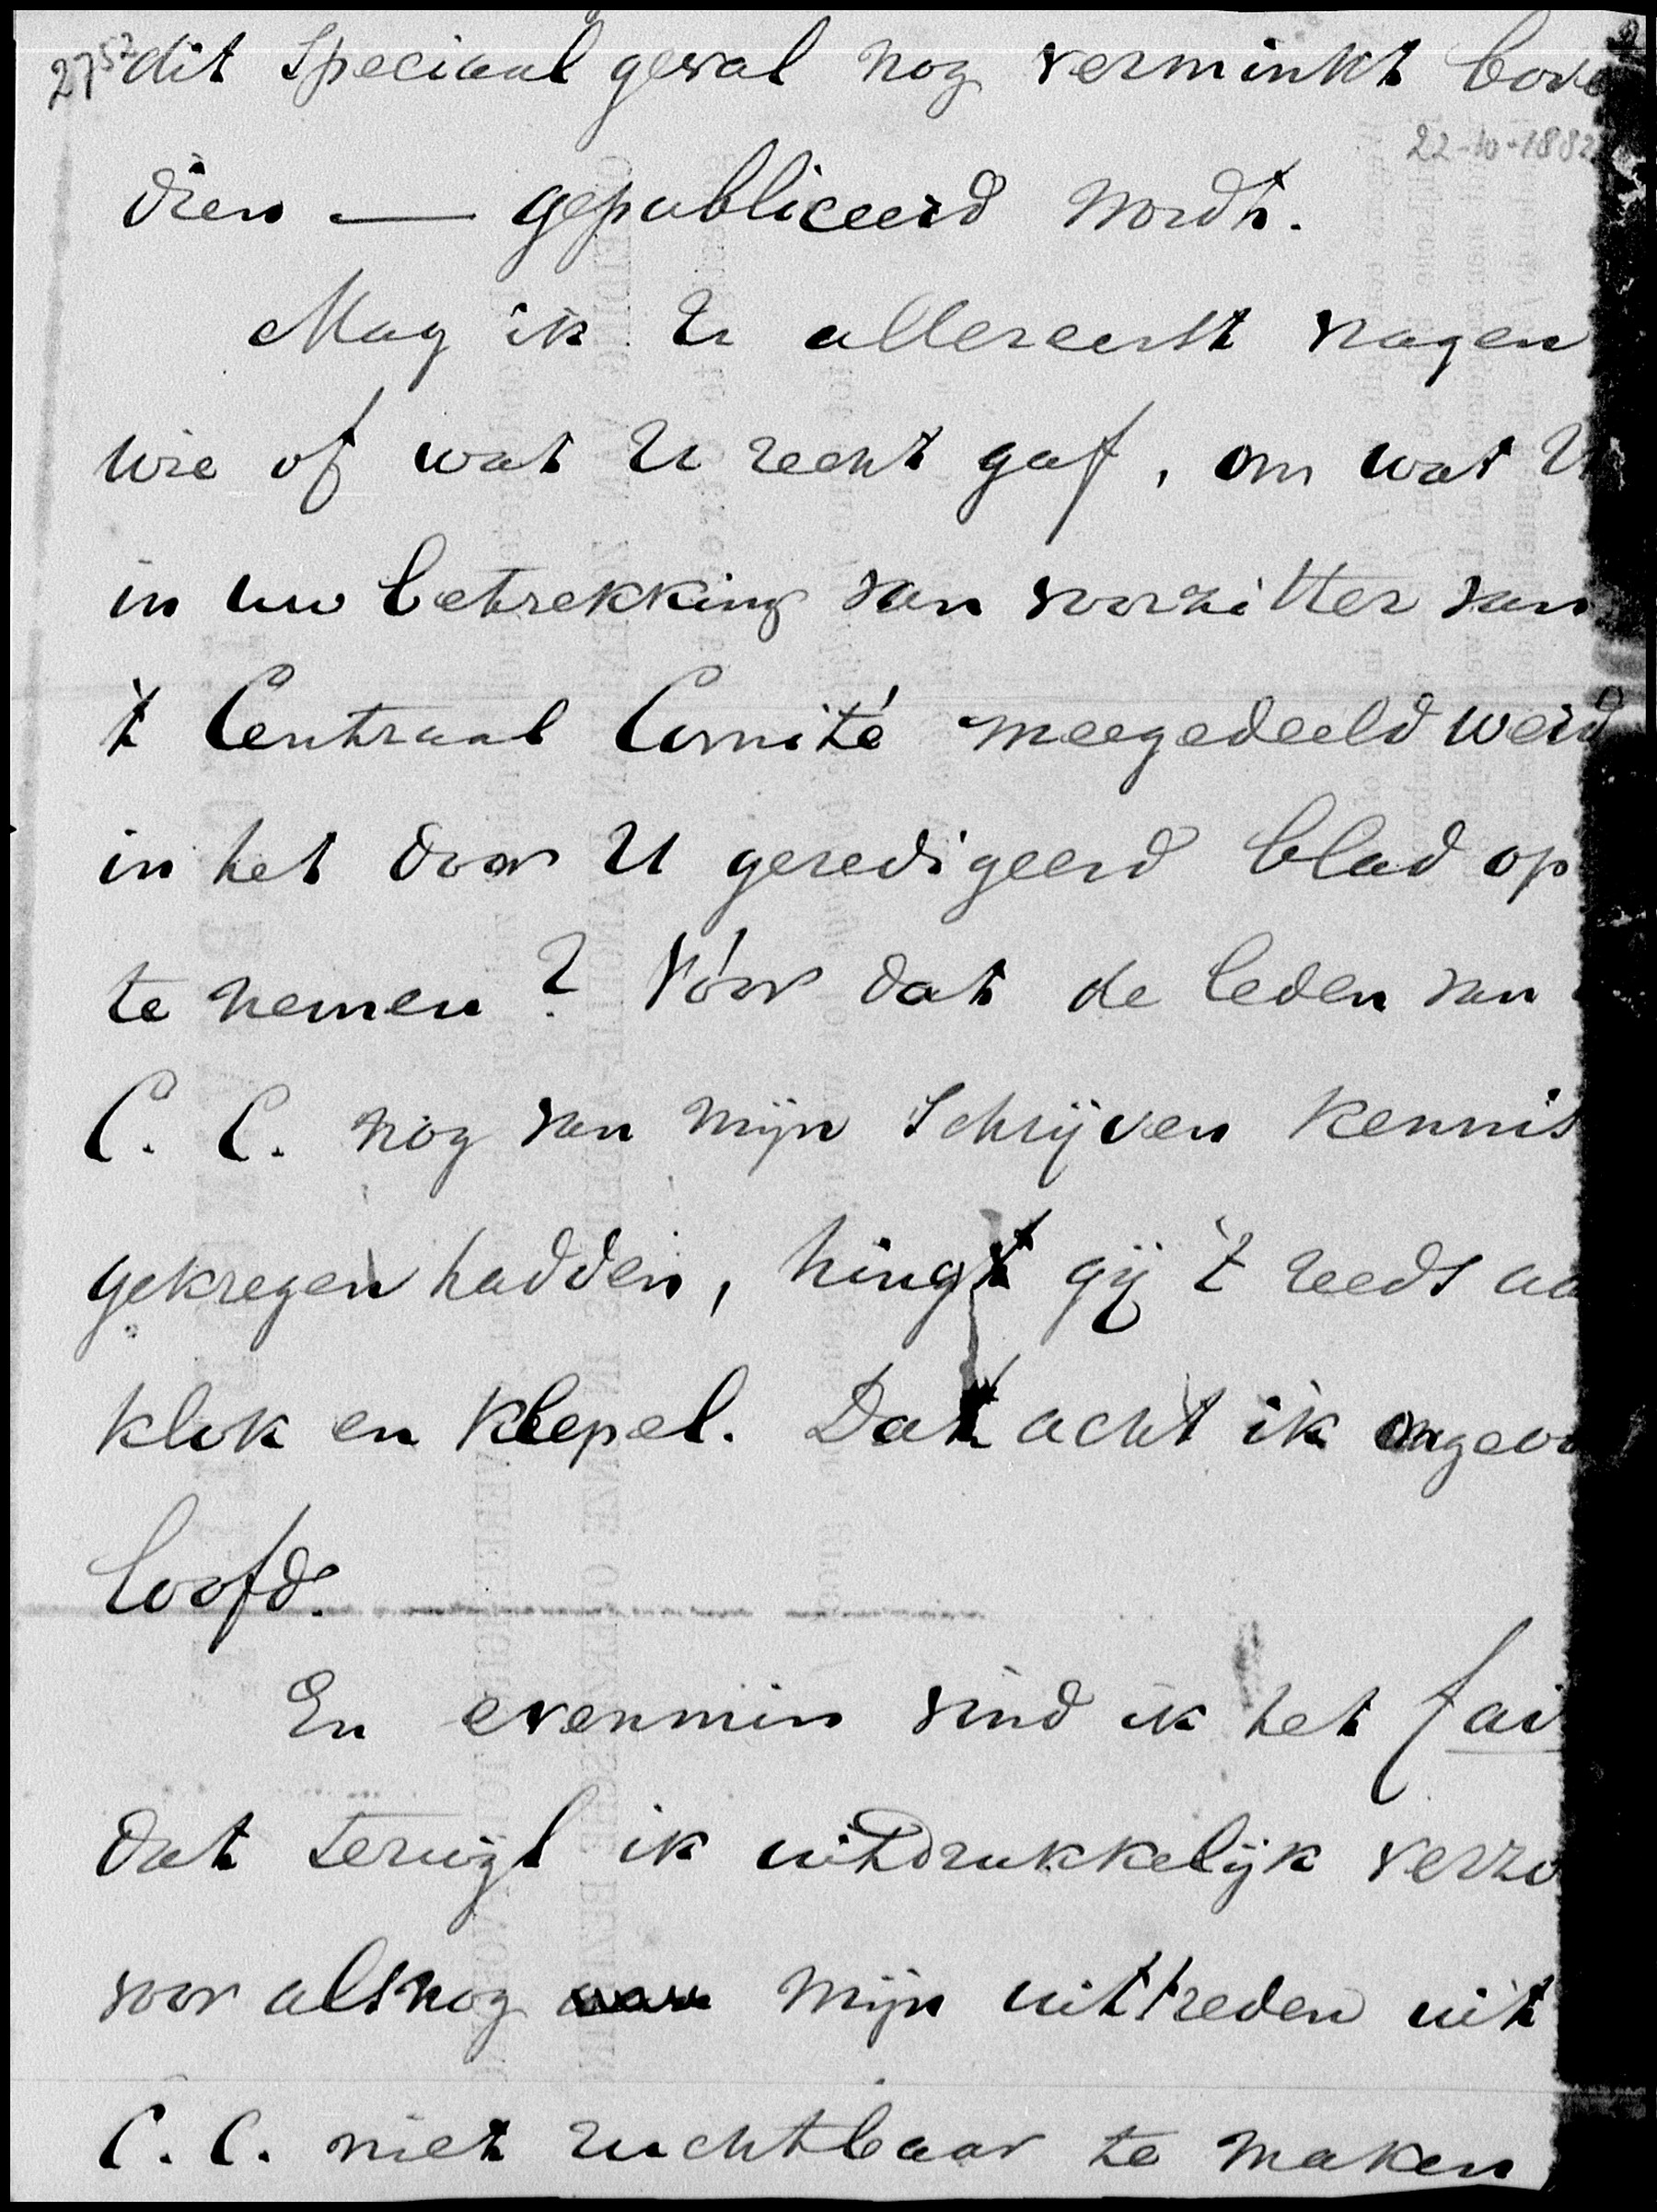 2752
dit speciaal geval nog verminkt bove
22-10-1882
dien — gepubliceerd wordt.
Mag ik U allereerst vragen
wie of wat U recht gaf, om wat U
in uw betrekking van voorzitter van
't Centraal Comité meegedeeld werd
in het door U geredigeerd blad op
te nemen? Vóór dat de leden van
C. C. nog van mijn schrijven kennis
gekregen hadden, hingt gij 't reeds aa
klok en klepel. Dat acht ik ongeoo
loofd.
En evenmin vind ik het fai
dat terwijl ik uitdrukkelijk verzo
voor alsnog mijn uittreden uit
C. C. niet ruchtbaar te maken